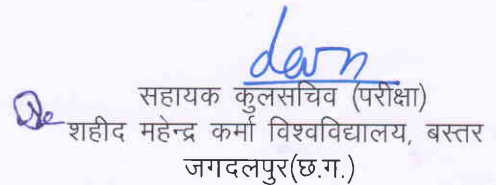 सहायक कुलसचिव (परीक्षा)
शहीद महेन्द्र कर्मा विश्वविद्यालय, बस्तर
जगदलपुर(छ.ग.)